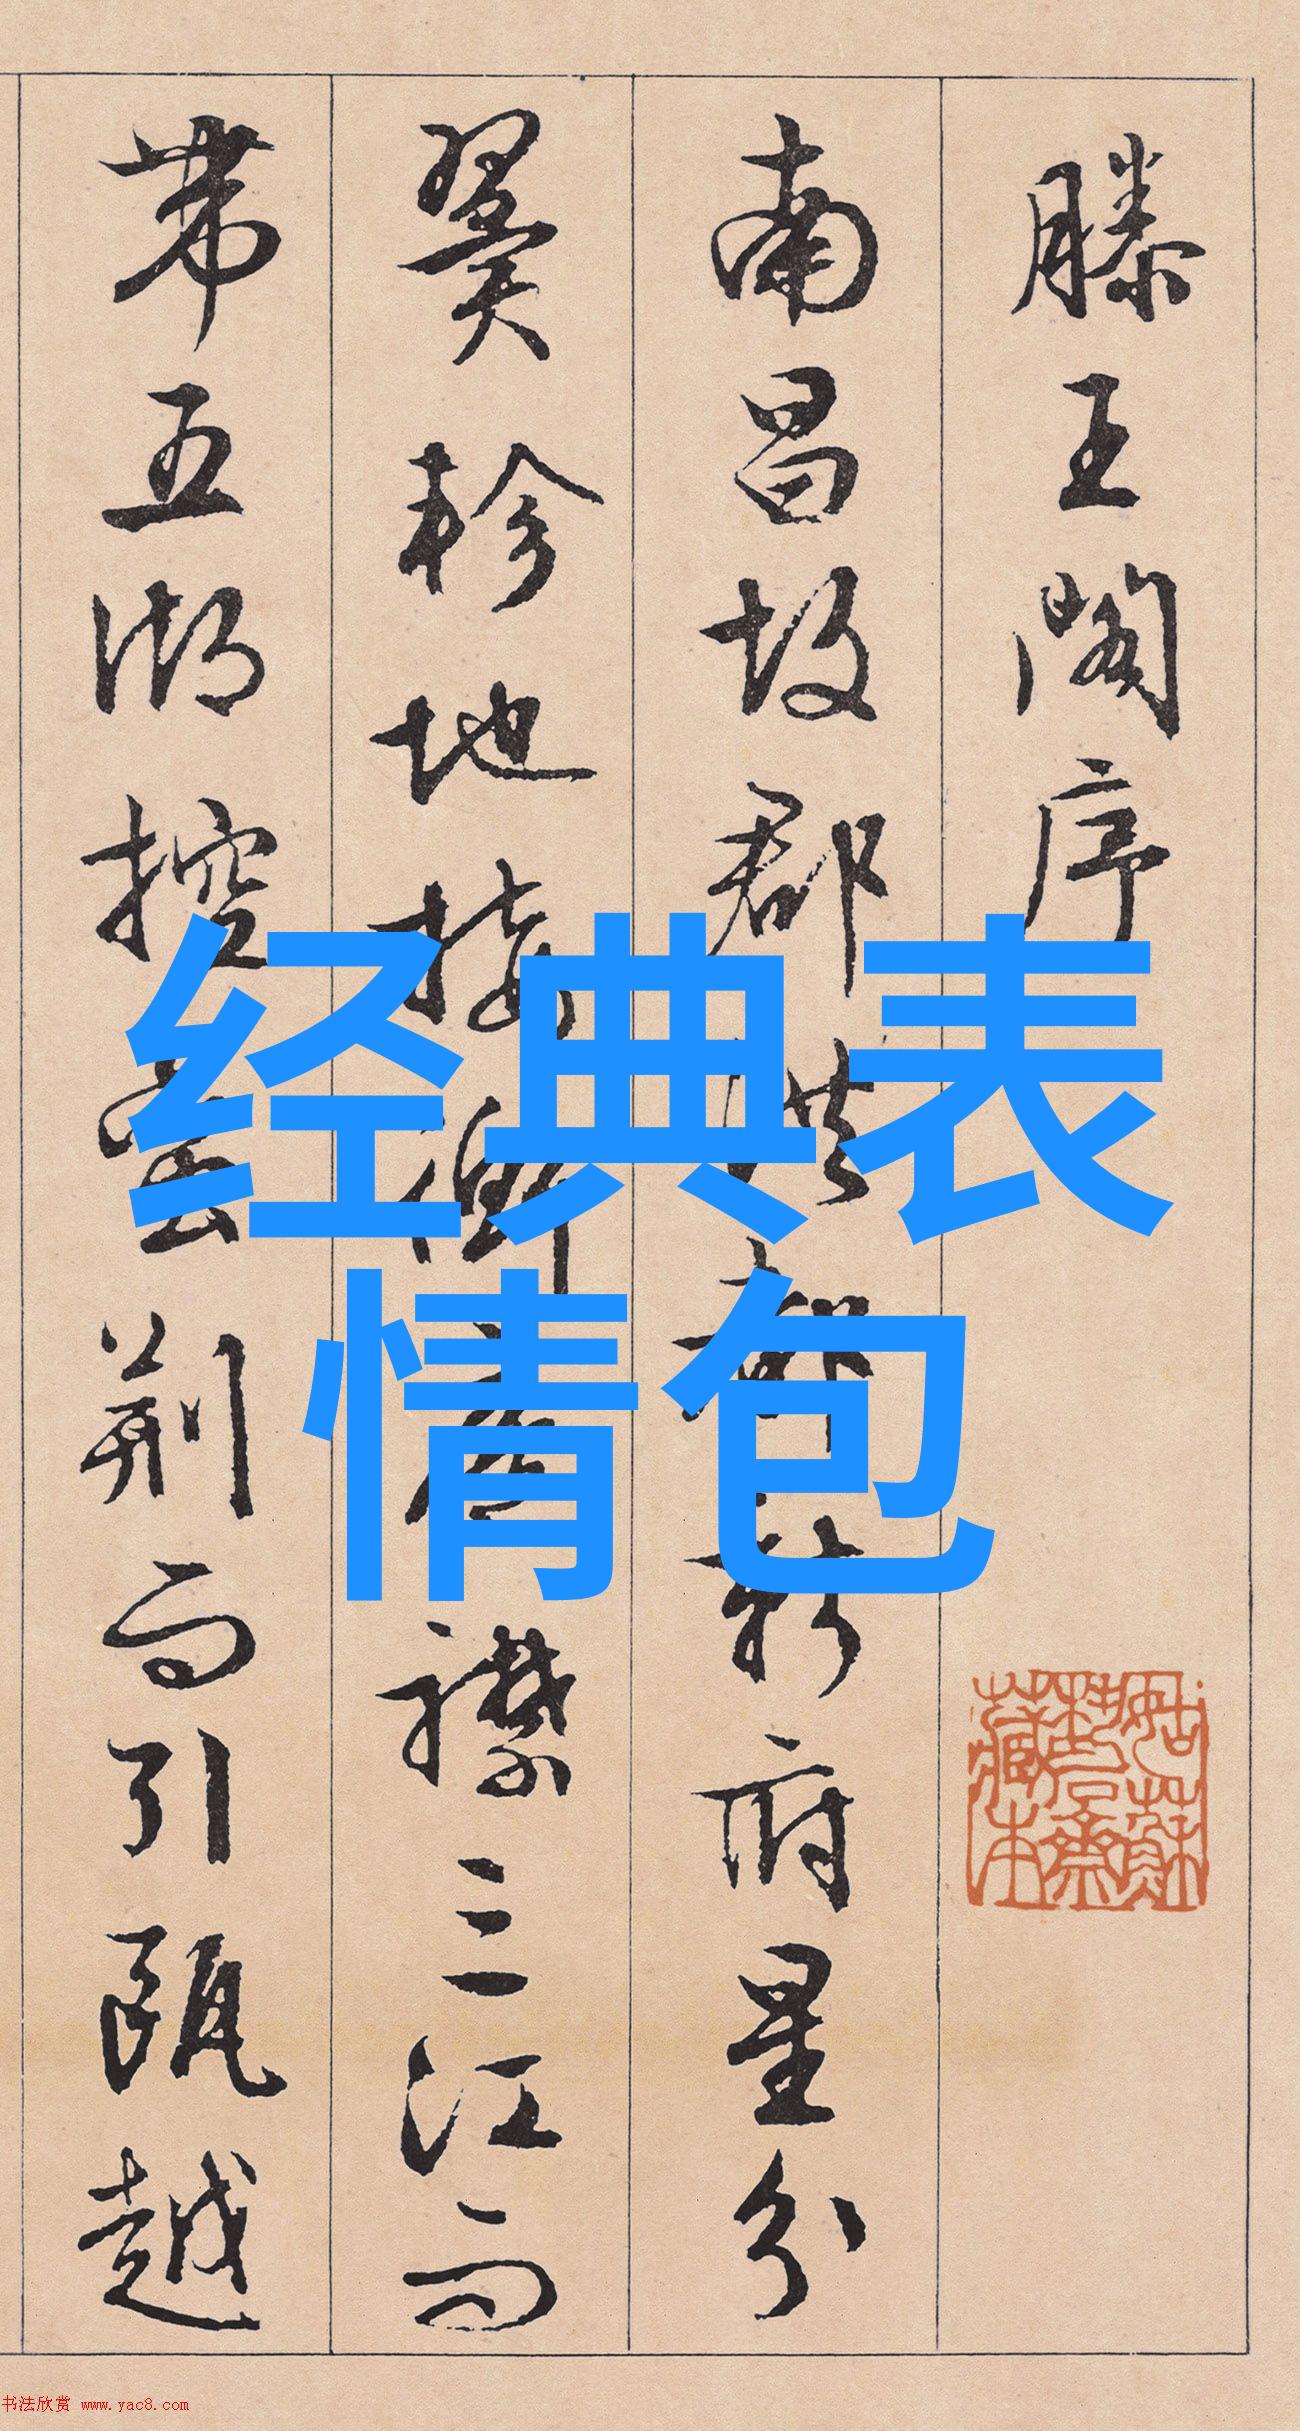 滕王閣序
南昌故郡洪都新府星分
翼軫地接衡廬襟三江而
帶五湖控蠻荆而引甌越
经典表
情包
书法欣赏 www.yac8.com